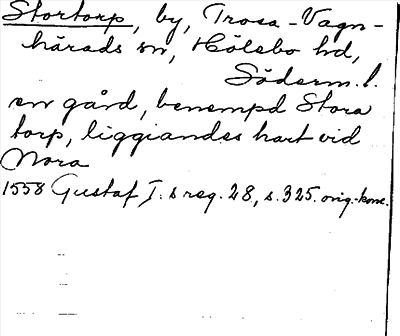 Stortorp, by, Trosa-Vagn-
härads sn, Hölebo hd,
Söderm. l.
en gård, benempd Stora
torp, liggiandes hart vid
Mora
1558 Gustaf I:s reg. 28, s. 325. orig.-konc.